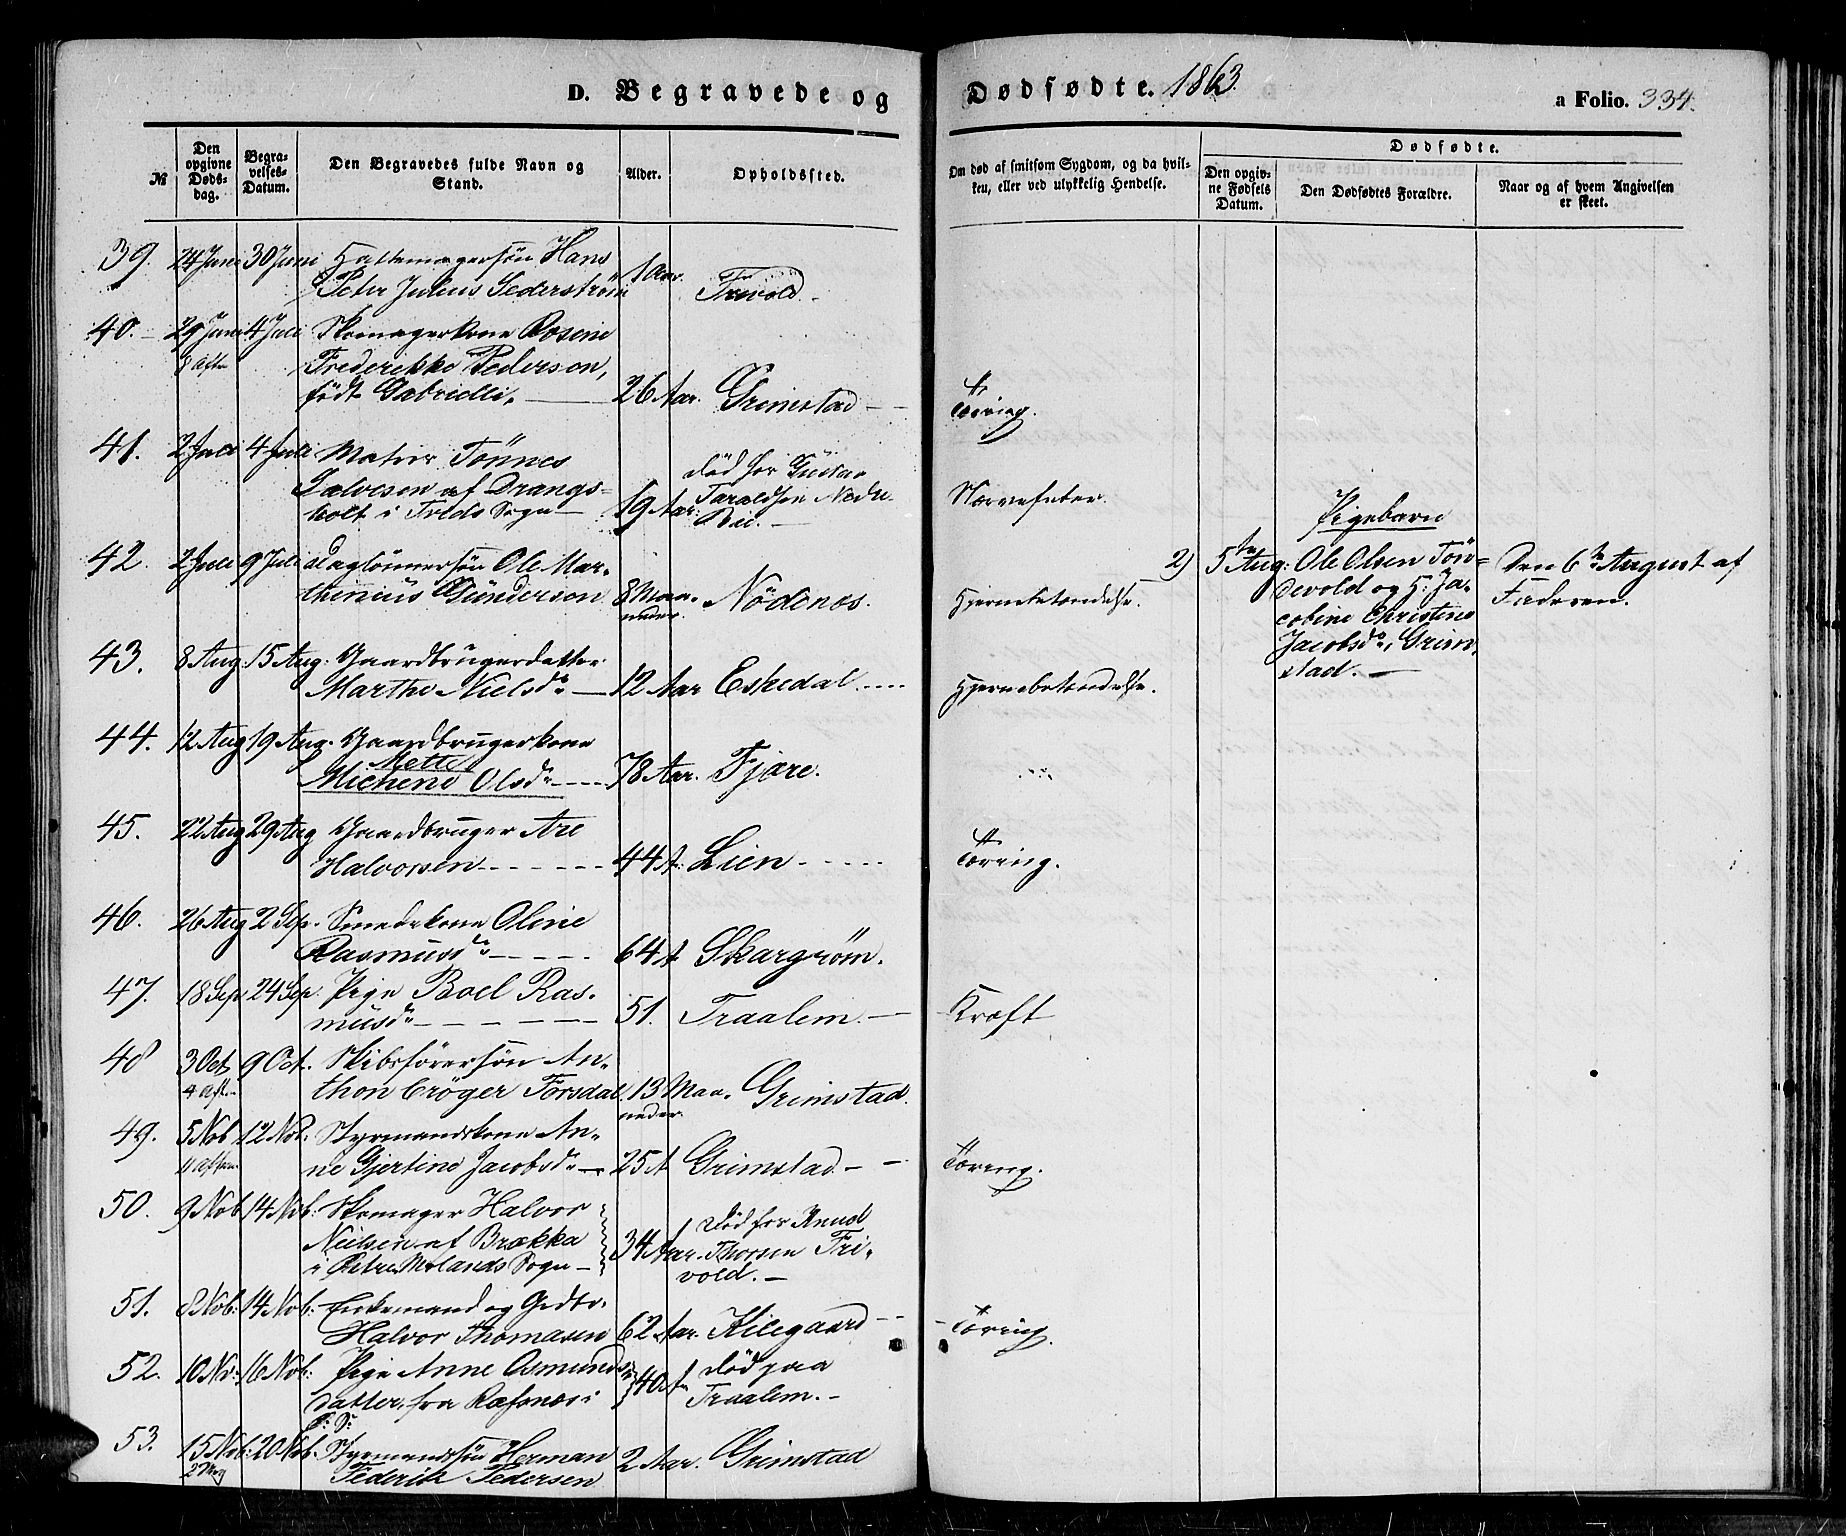 D. Begravede og Dødfødte. 1863.
a Folio. 334.
№
Den opgivne Døds- dag.
Begra- velses- Datum.
Den Begravedes fulde Navn og Stand.
Alder.
Opholdssted.
Om død af smitsom Sygdom, og da hvil- ken, eller ved ulykkelig Hendelse.
Dødfødte.
Den opgiv- ne Fødsels Datum.
Den Dødfødtes Forældre.
Naar og af hvem Angivelsen er skeet.
39. 24 Juni 30 Juni Hans
Peter Julius Sederström 1 Aar. Frivold.
40. 29 Juni 4 Juli Skomagerkone Rosine
8 Aften Frederikke Pederson,
født Gabrielli. 26 Aar. Grimstad Tæring.
41. 2 Juli 4 Juli Matros Tönnes død hos
Salvesen af Drangs= Taraldsen Nedr.
holt i Treds Sogn 19 Aar. Bie. Nervefeber.
42. 2 Juli 9 Juli Daglönnersön Ole Mar=
thinius Gunderson 8 Maa= neder. Nödenes. Hjernebetændelse.
2) 5te Aug: Pigebarn
Ole Olsen Tön=
devold og H: Ja=
cobine Christine
Jacobsdr, Grim=
stad.
Den 6te August af
Faderen.
43. 8 Aug. 15 Aug. Gaardbrugerdatter
Marthe Nielsdr 12 Aar Eskedal Hjernebetændelse.
44. 12 Aug 19 Aug. Gaardbrugerkone
Mette
Michene Olsdr 78 Aar. Fjære.
45. 22 Aug 29 Aug Gaardbruger Are
Halvorsen 44 A. Lien Tæring.
46. 26 Aug 2 Sep. Smedekone Oline
Rasmusdr 64 A Skargröm.
47. 18 Sep 24 Sep. Pige Boel Ras=
musdr 51. Traalem. Kræft
48 3 Oct 9 Oct. Skibsförersön An=
4 Aft. thon Cröger Torsdal 13 Maa= neder. Grimstad.
49. 5 Nob 12 Nob. Styrmandskone An=
11 Aften ne Gjertine Jacobsdr 25 A Grimstad Tæring.
50. 9 Nob 14 Nob: Skomager Halvor død hos Knud
Nielsen af Brækka 34 Aar. Thorsen Fri=
i Østre Molands Sogn vold.
51. 8 Nob: 14 Nob: Enkemand og
Halvor Thomasen 62 Aar. Kilegaard Tæring.
52. 10 No: 16 Nob. Pige Anne Osmunds= død paa
datter, fra Ræfsnæs i 40 A Traalem.
Ø: S:
53. 15 Nob: 20 Nob. Styrmandssön Herman
Federik Pedersen 2 Aar. Grimstad